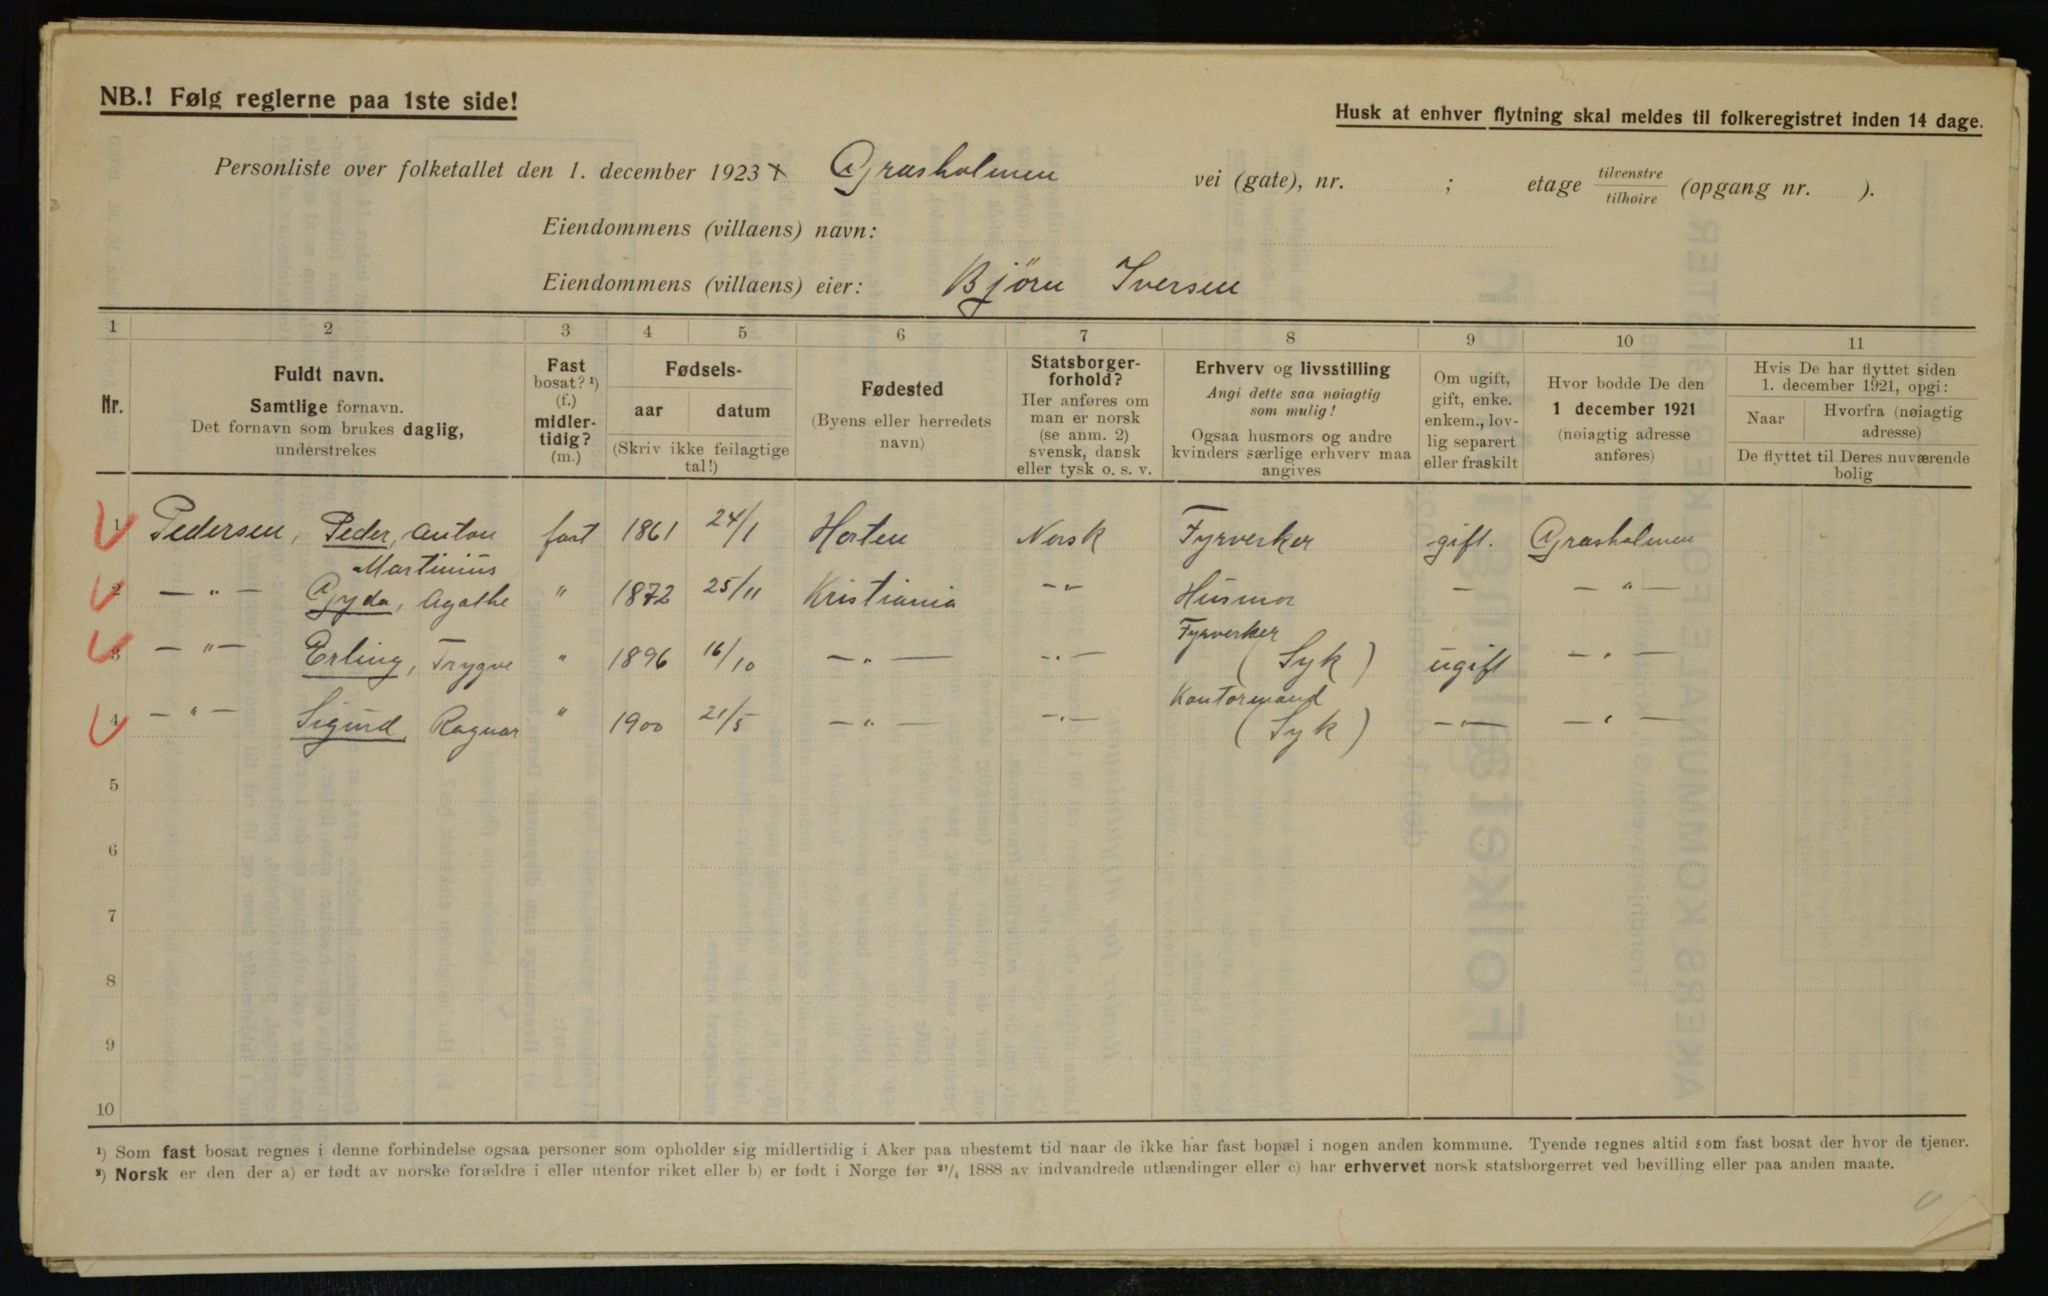 NB.! Følg reglerne paa 1ste side!
Husk at enhver flytning skal meldes til folkeregistret inden 14 dage.
Personliste over folketallet den 1. december 1923 Græsholmen vei (gate), nr. ; etage tilvenstre/tilhøire (opgang nr. ).
Eiendommens (villaens) navn:
Eiendommens (villaens) eier: Bjørn Iversen
1 2 3 4 5 6 7 8 9 10 11
Nr.
Fuldt navn.
Samtlige fornavn.
Det fornavn som brukes daglig,
understrekes
Fast
bosat? ¹)
(f.)
midler-
tidig?
(m.)
Fødsels-
aar datum
(Skriv ikke feilagtige
tal!)
Fødested
(Byens eller herredets
navn)
Statsborger-
forhold?
Her anføres om
man er norsk
(se anm. 2)
svensk, dansk
eller tysk o. s. v.
Erhverv og livsstilling
Angi dette saa nøiagtig
som mulig!
Ogsaa husmors og andre
kvinders særlige erhverv maa
angives
Om ugift,
gift, enke.
enkem., lov-
lig separert
eller fraskilt
Hvor bodde De den
1 december 1921
(nøiagtig adresse
anføres)
Hvis De har flyttet siden
1. december 1921, opgi:
Naar Hvorfra (nøiagtig
adresse)
De flyttet til Deres nuværende
bolig
1 Pedersen, Peder, Anton fast 1861 24/1 Horten Norsk Fyrverker gift. Græsholmen
Martinius
2 — " — Gyda, Agathe " 1872 25/11 Kristiania — " — Husmor — — " —
Fyrverker
3 — " — Erling, Trygve " 1896 16/10 — " — — " — (Syk) ugift — " —
Kontormand
4 — " — Sigurd, Ragnar " 1900 21/5 — " — — " — (Syk) — " — — " —
5
6
7
8
9
10
¹) Som fast bosat regnes i denne forbindelse ogsaa personer som opholder sig midlertidig i Aker paa ubestemt tid naar de ikke har fast bopæl i nogen anden kommune. Tyende regnes altid som fast bosat der hvor de tjener.
²) Norsk er den der a) er født av norske forældre i eller utenfor riket eller b) er født i Norge før ²¹/₄ 1888 av indvandrede utlændinger eller c) har erhvervet norsk statsborgerret ved bevilling eller paa anden maate.